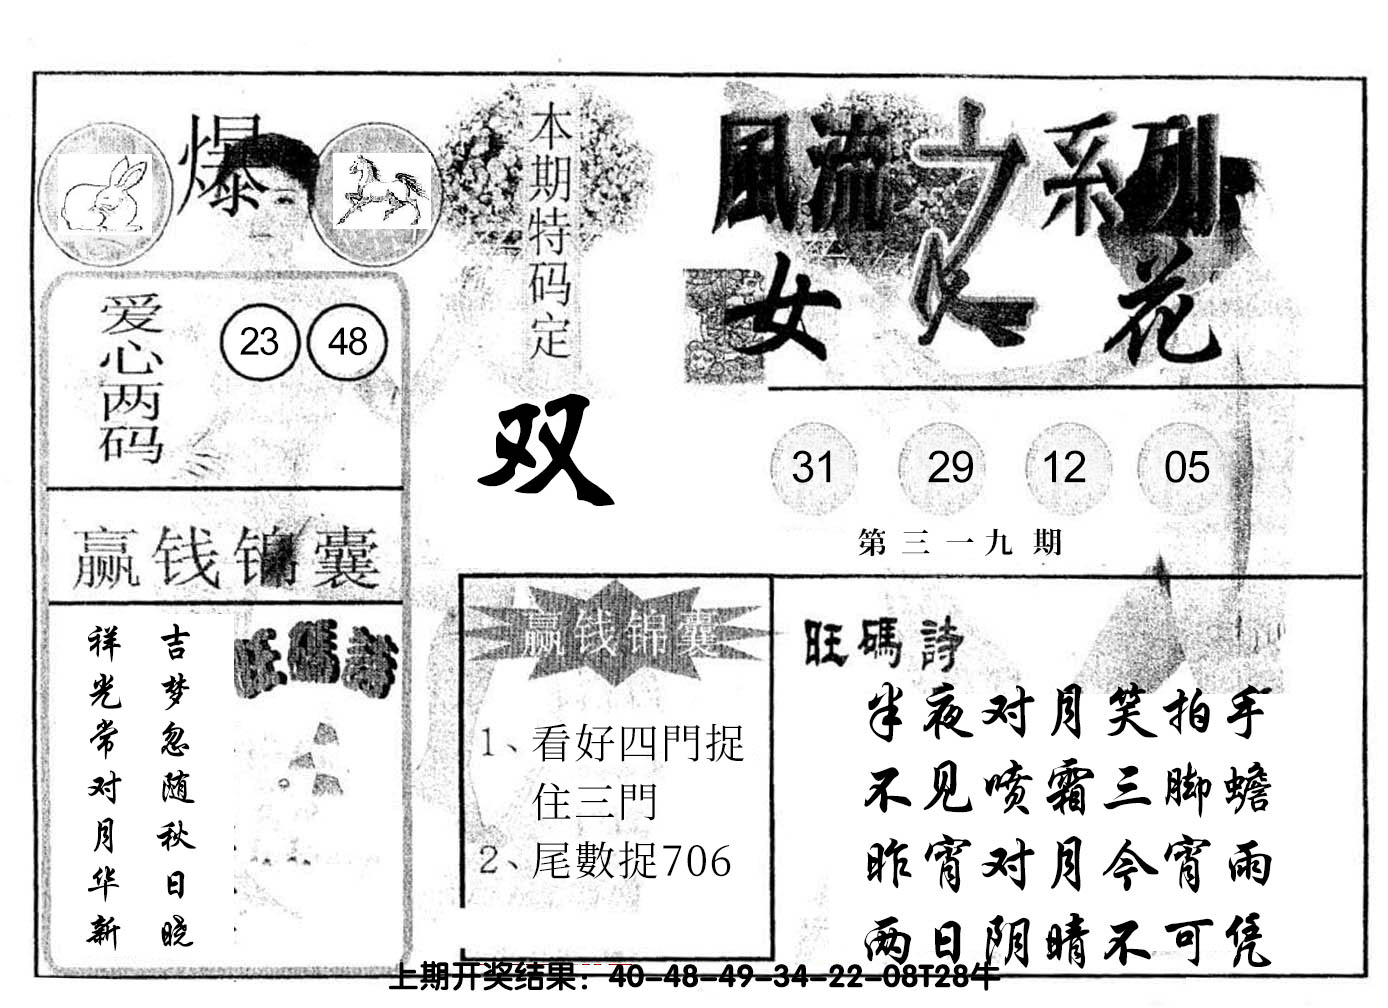 爆
本期特码定
双
風流之系列
女人花
爱心两码
23 48
31 29 12 05
第三一九期
赢钱锦囊
吉梦忽随秋日晓
祥光常对月华新
旺碼詩
赢钱锦囊
1、看好四門捉
住三門
2、尾數捉706
旺碼詩
半夜对月笑拍手
不见喷霜三脚蟾
昨宵对月今宵雨
两日阴晴不可凭
上期开奖结果：40-48-49-34-22-08T28牛